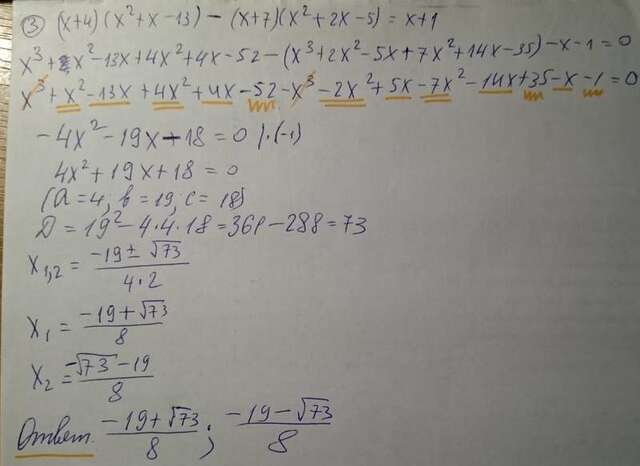 ③ (x+4)(x²+x-13) - (x+7)(x²+2x-5) = x+1
x³+x²-13x+4x²+4x-52-(x³+2x²-5x+7x²+14x-35)-x-1=0
x³+x²-13x+4x²+4x-52-x³-2x²+5x-7x²-14x+35-x-1=0
-4x²-19x-18=0 |·(-1)
4x²+19x+18=0
(a=4; b=19; c=18)
D=19²-4·4·18=361-288=73
x₁,₂ = (-19±√73)/(4·2)
x₁ = (-19+√73)/8
x₂ = (-√73-19)/8
Ответ. (-19+√73)/8 ; (-19-√73)/8